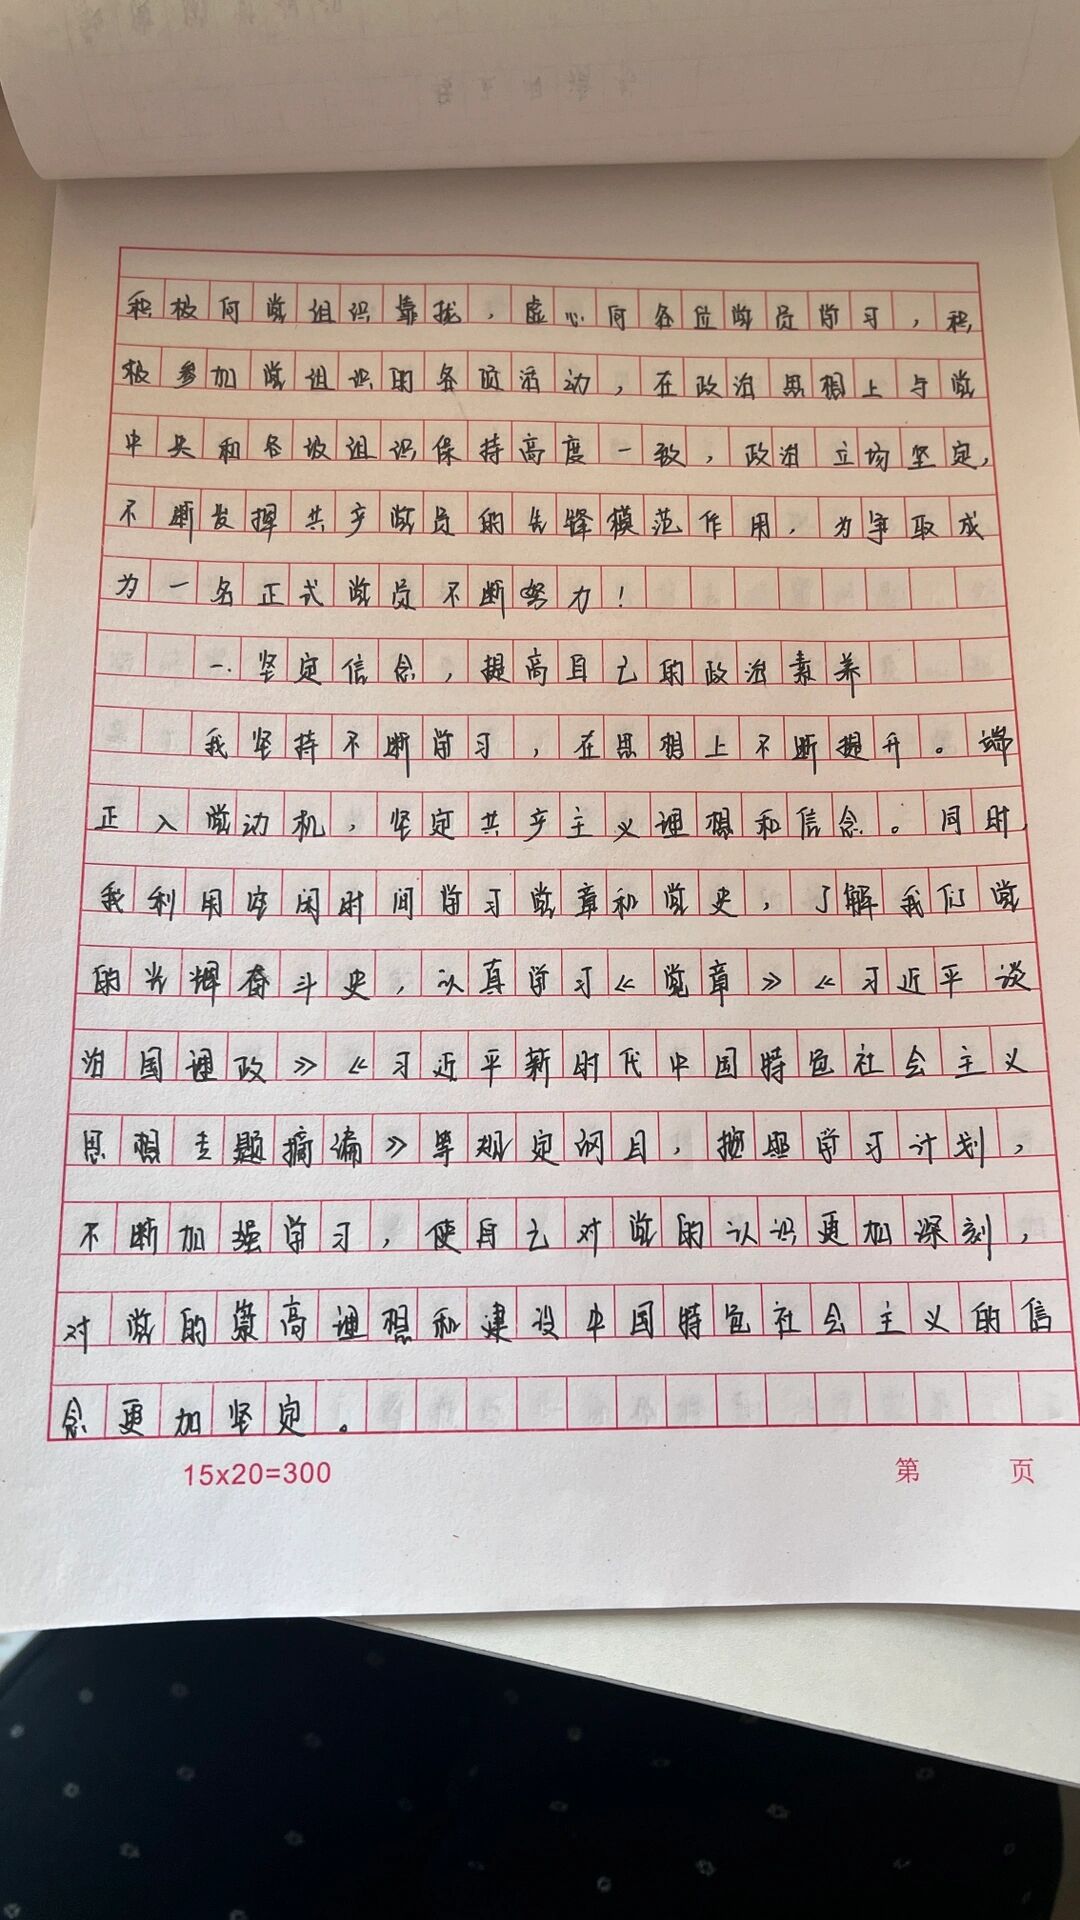 积极向党组织靠拢，虚心向各位党员学习，积
极参加党组织的各项活动，在政治思想上与党
中央和各级组织保持高度一致，政治立场坚定，
不断发挥共产党员的先锋模范作用，为争取成
为一名正式党员不断努力！
一、坚定信念，提高自己的政治素养
我坚持不断学习，在思想上不断提升。端
正入党动机，坚定共产主义理想和信念。同时，
我利用空闲时间学习党章和党史，了解我们党
的光辉奋斗史，认真学习《党章》《习近平谈
治国理政》《习近平新时代中国特色社会主义
思想专题摘编》等规定网目，按照学习计划，
不断加强学习，使自己对党的认识更加深刻，
对党的最高理想和建设中国特色社会主义的信
念更加坚定。
15x20=300
第 页